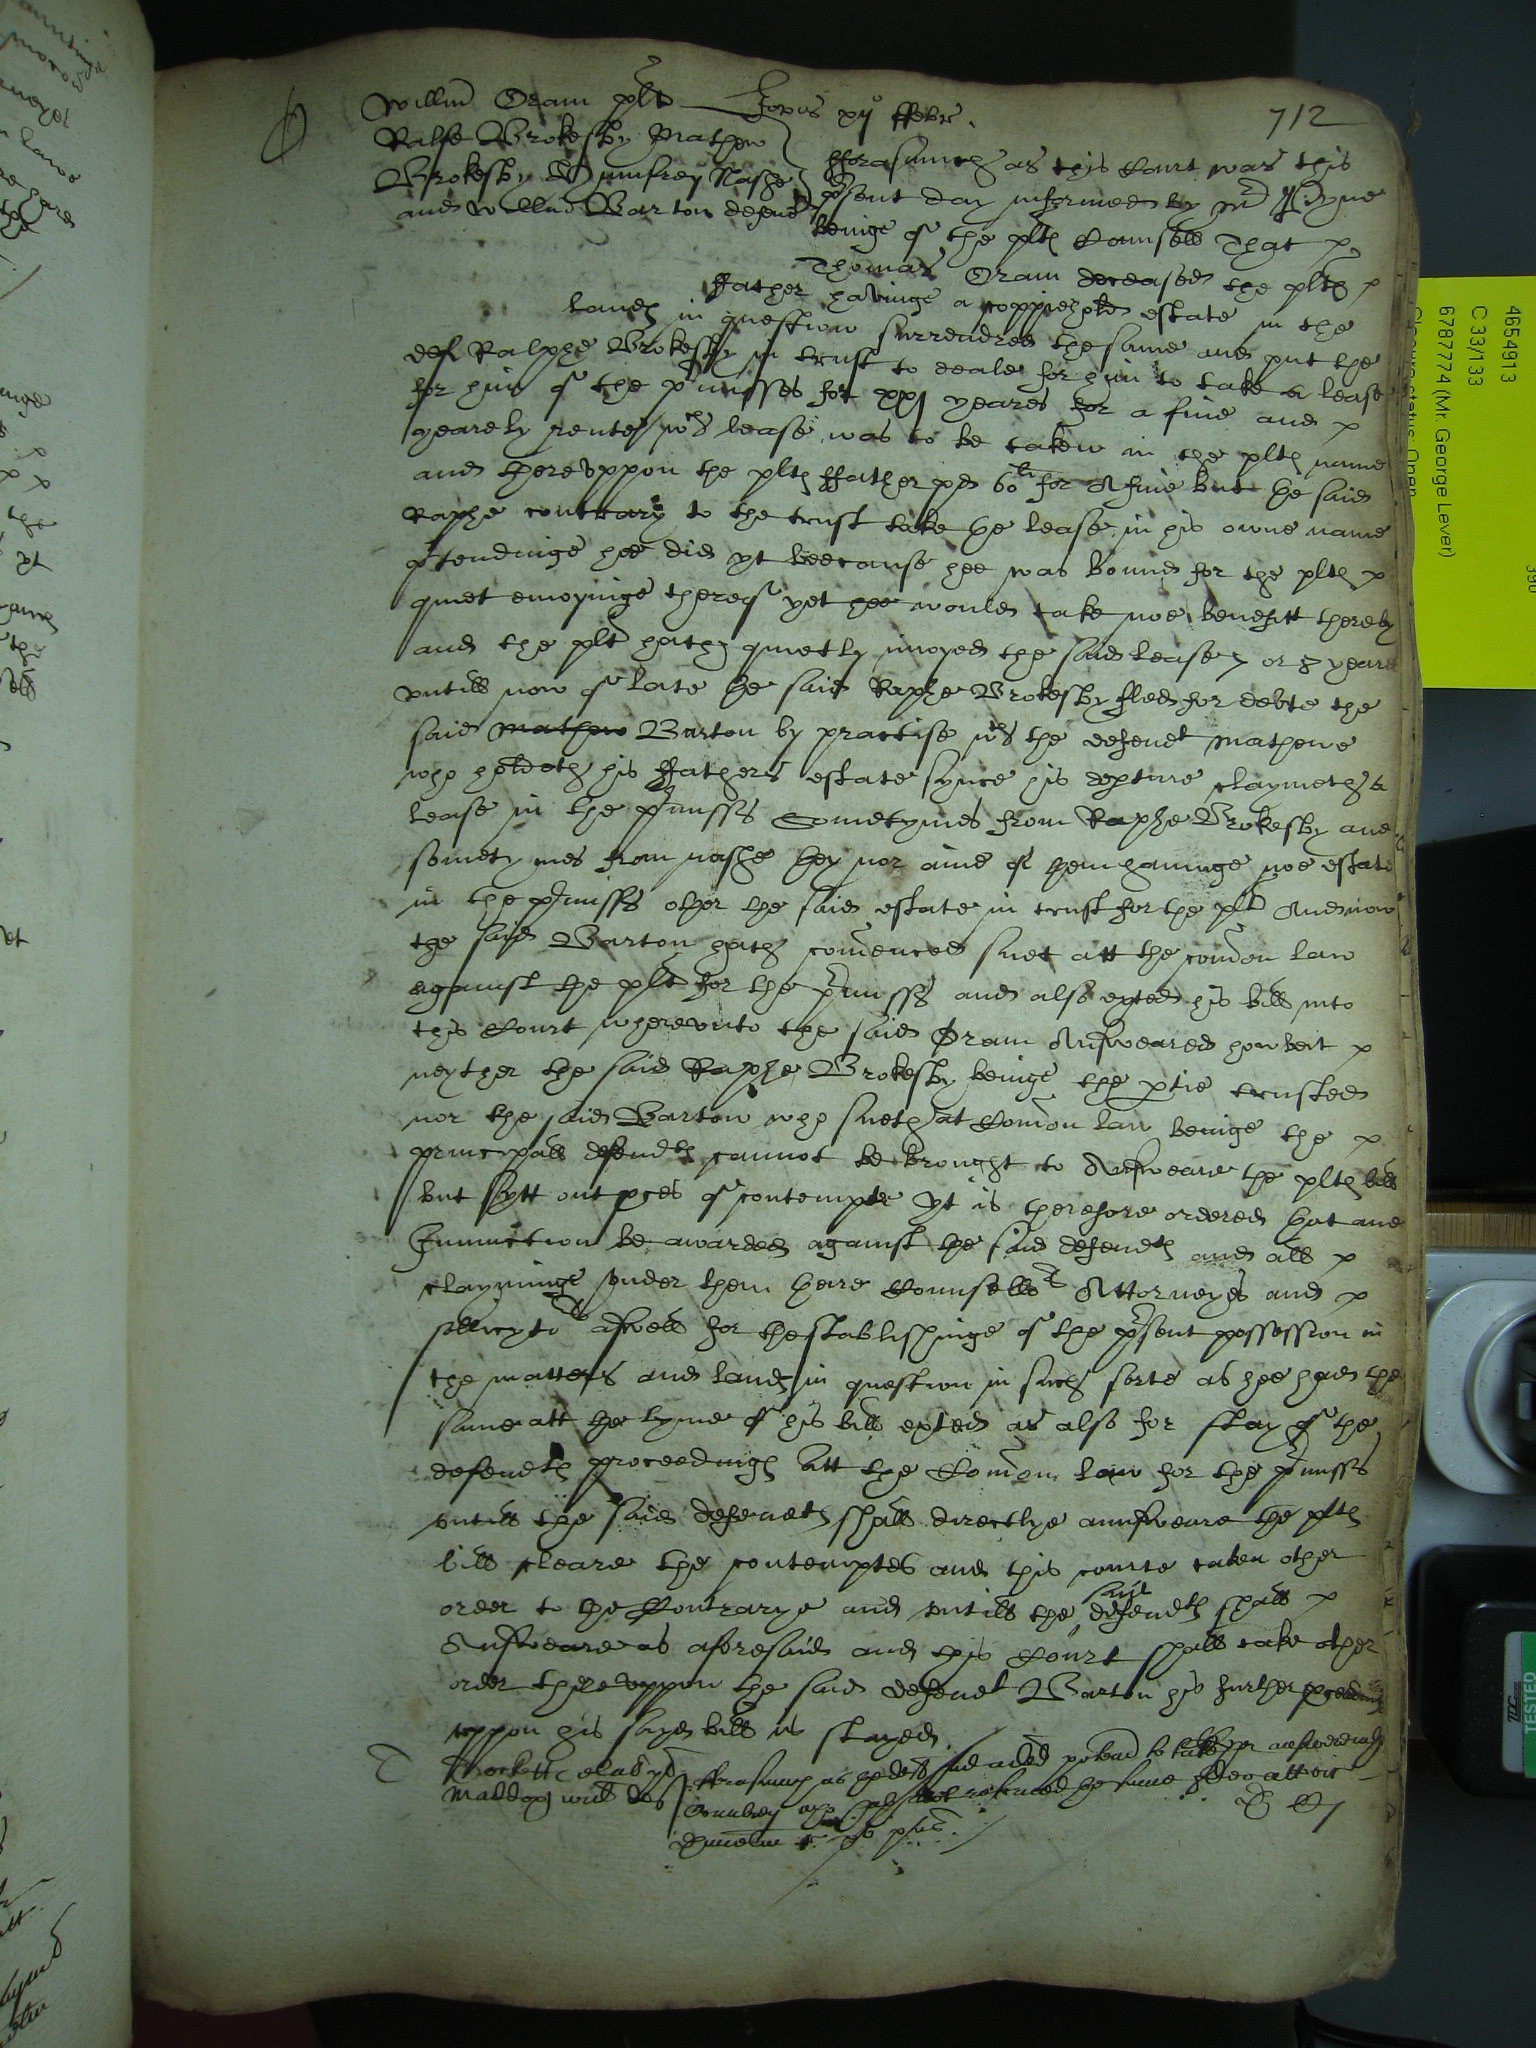 712
Willm Oram plt Jovis xij ffebr.
Ralfe Brokesby Mathew
Brokesby Humfrey Nashe
and Willm Barton defendts
fforasmuch as this Court was this
psent day informed by Mr
beinge of the plts Counsell That
Thomas Oram deceased the plts
ffather havinge a coppieholde estate in the
lands in question surrendred the same and put the
def Ralphe Brokesby in trust to deale for him to take a lease
for him of the pmisses for xxj yeares for a fine and
yearely rente wch lease was to be taken in the plts name
and therevppon the plts ffather pd 60li for A fine but he said
Raphe contrary to the trust take he lease in his owne name
ptendinge hee did yt beecause hee was bound for the plts
quiet enioyinge thereof yet hee would take noe benefitt thereby
and the plt hath quietly inioyed the said lease 7 or 8 yeares
vntill now of late he said Raphe Brokesby fled for debte the
said Mathew Barton by practise wth the defendt Mathewe
who holdeth his ffathers estate synce his depture claymeth a
lease in the pmisses Sometymes from Raphe Brokesby and
sometymes from nashe they nor anie of them havinge noe estate
in the pmisses other the said estate in trust for the plt And now
the said Barton hath comenced suet att the comon law
against the plt for the pmisses and also exhited his bill into
this Court wherevnto the said Oram Answeared howbeit
neyther the said Raphe Brokesby beinge the ptie trusted
nor the said Barton who sueth at Comon law beinge the
principall defendts cannot be brought to Answeare the plts bill
but sytt out pces of contempte yt is therefore ordered that ane
Iniunction be awarded against the said defendts and all
clayminge vnder them theire Counsellrs Attorneyes and
sollicytors aswell for thestablishinge of the psent possession in
the matters and lands in question in such sorte as hee had the
same att the tyme of his bill exhited as also for stay of the
defendts proceedings Att the Comon law for the pmisses
vntill the said defendts shall directlye aunsweare the plts
bill cleare the contemptes and this courte taken other
order to the Contrarye and vntill the said defendts shall
Answeare as aforesaid and this Court shall take other
order therevppon the said defendt Barton his further pceedings
vppon his sayd bill is stayed
fforasmuch as